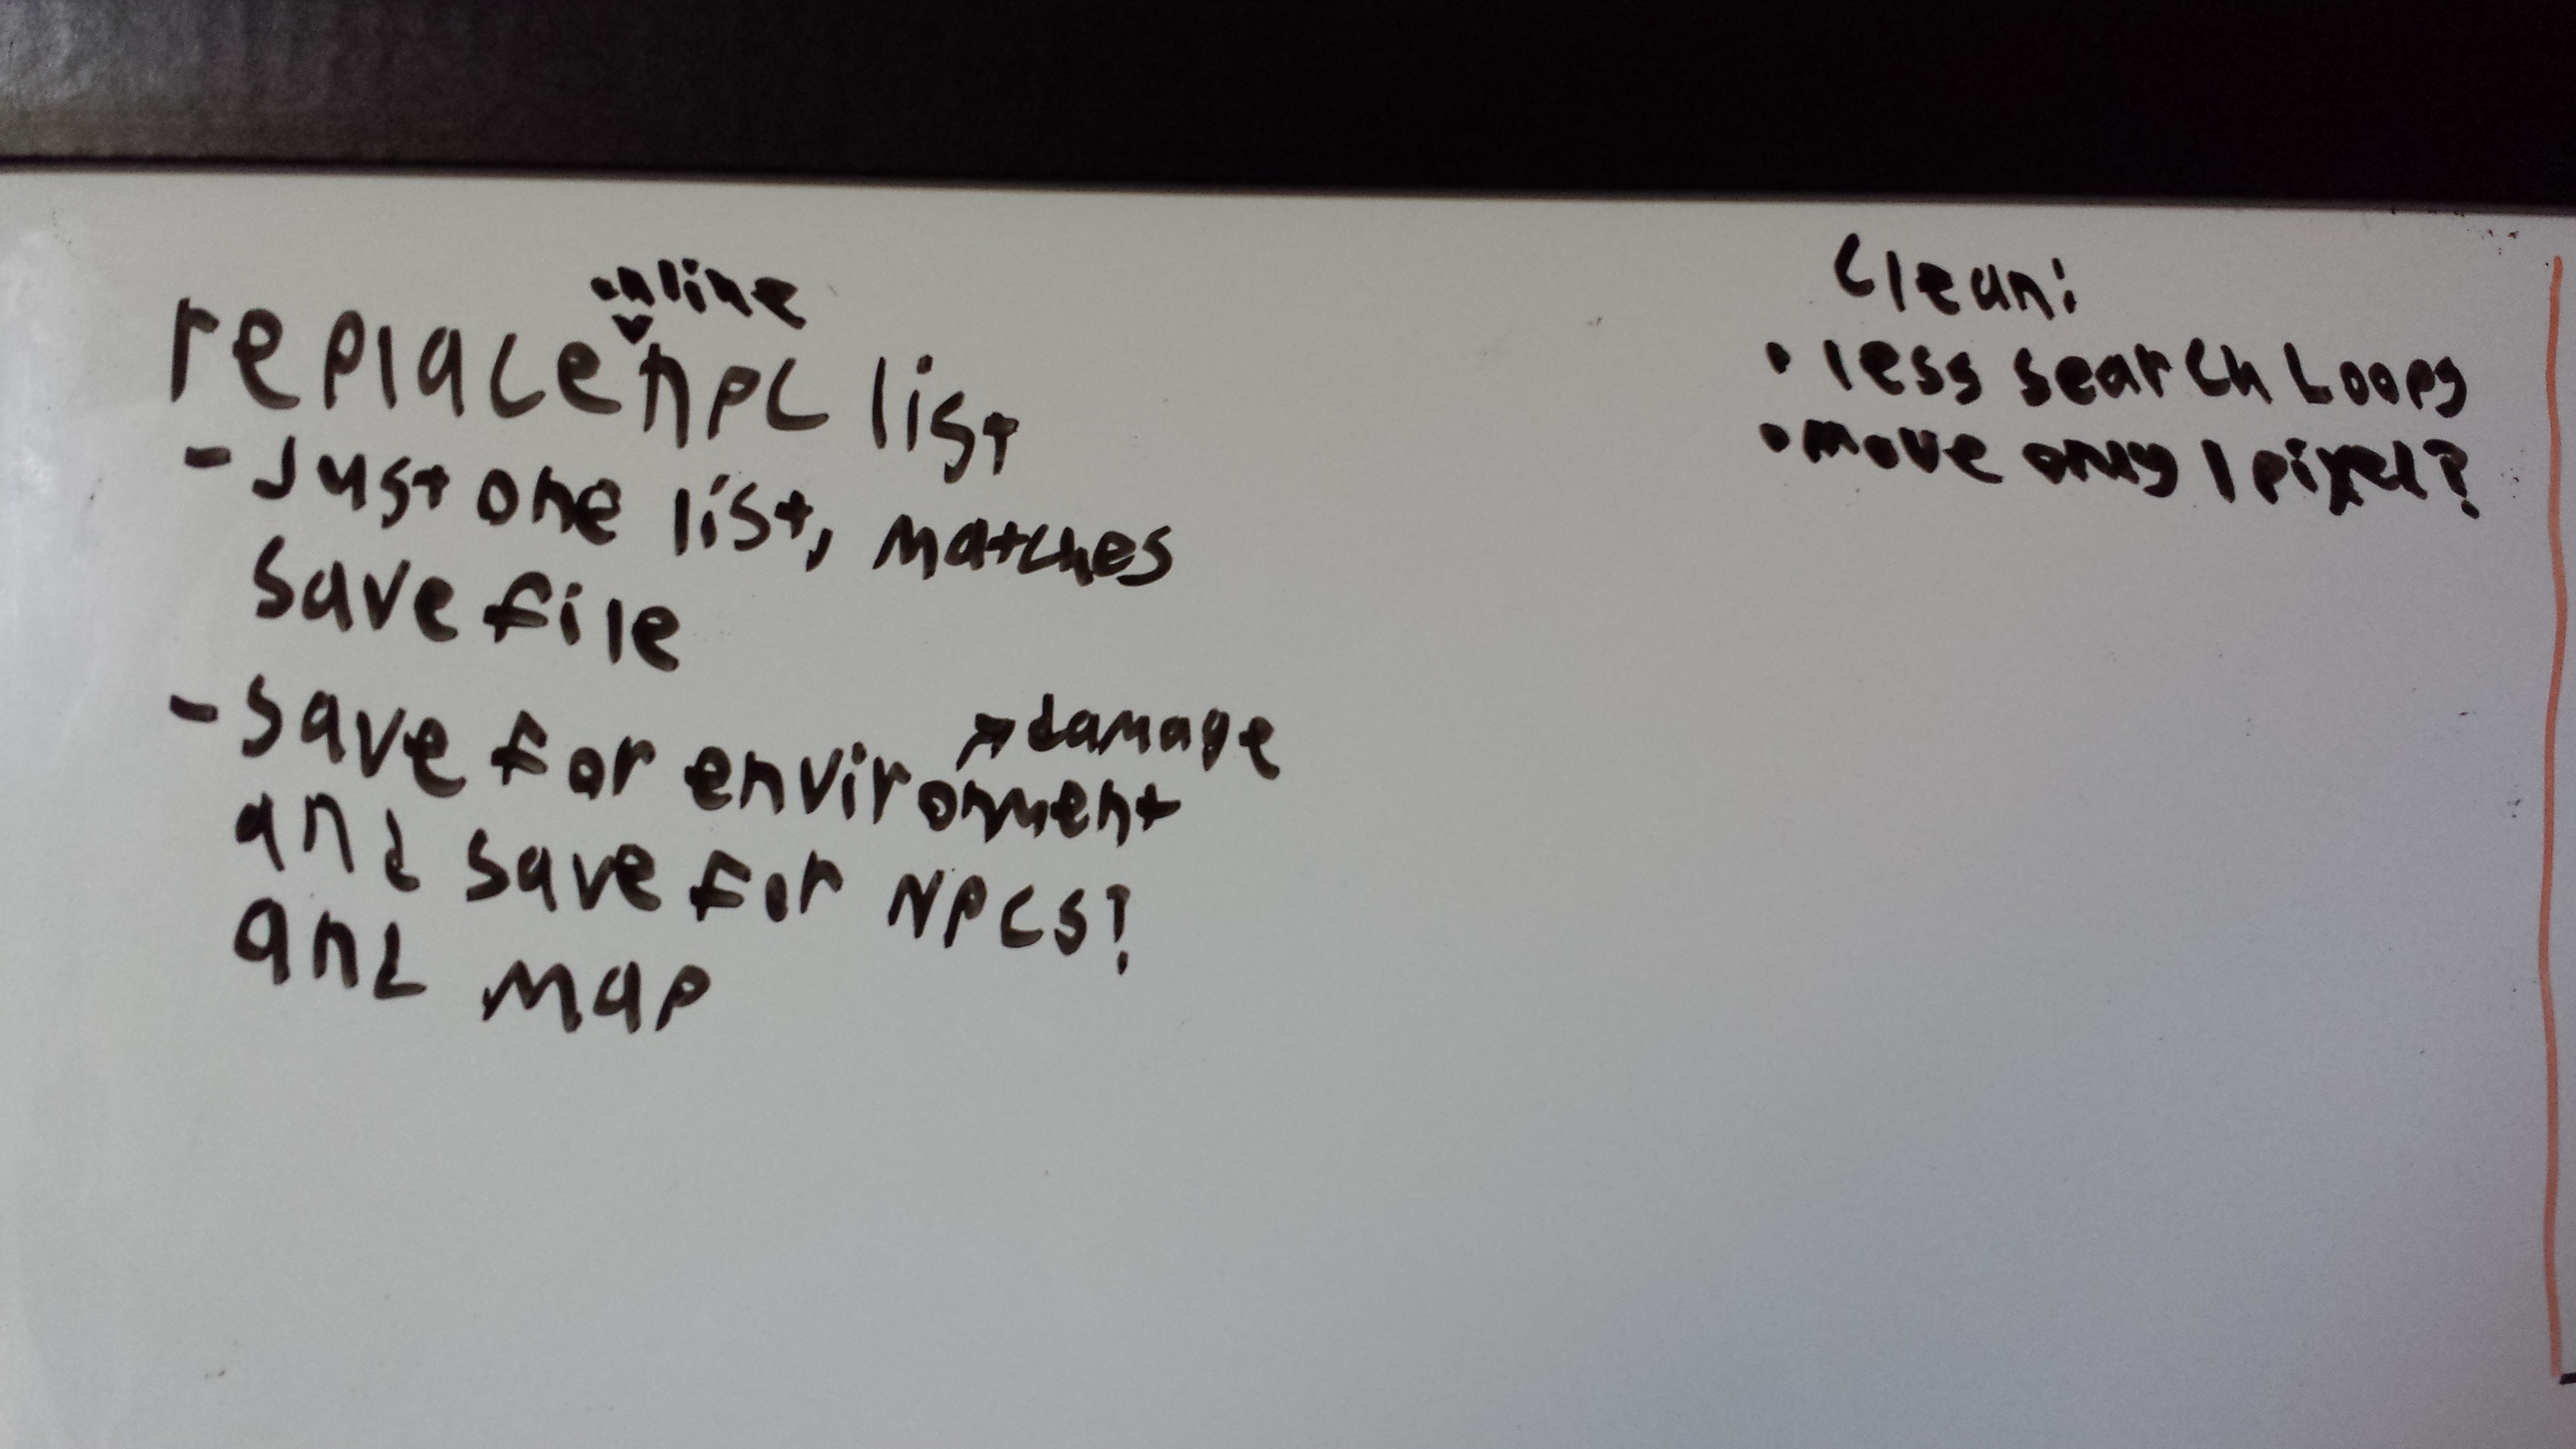 replace online npc list
- Just one list, matches
save file
- save for environment → damage
and save for NPCs?
and map
Clean:
• less search Loops
• move only 1 pixel?